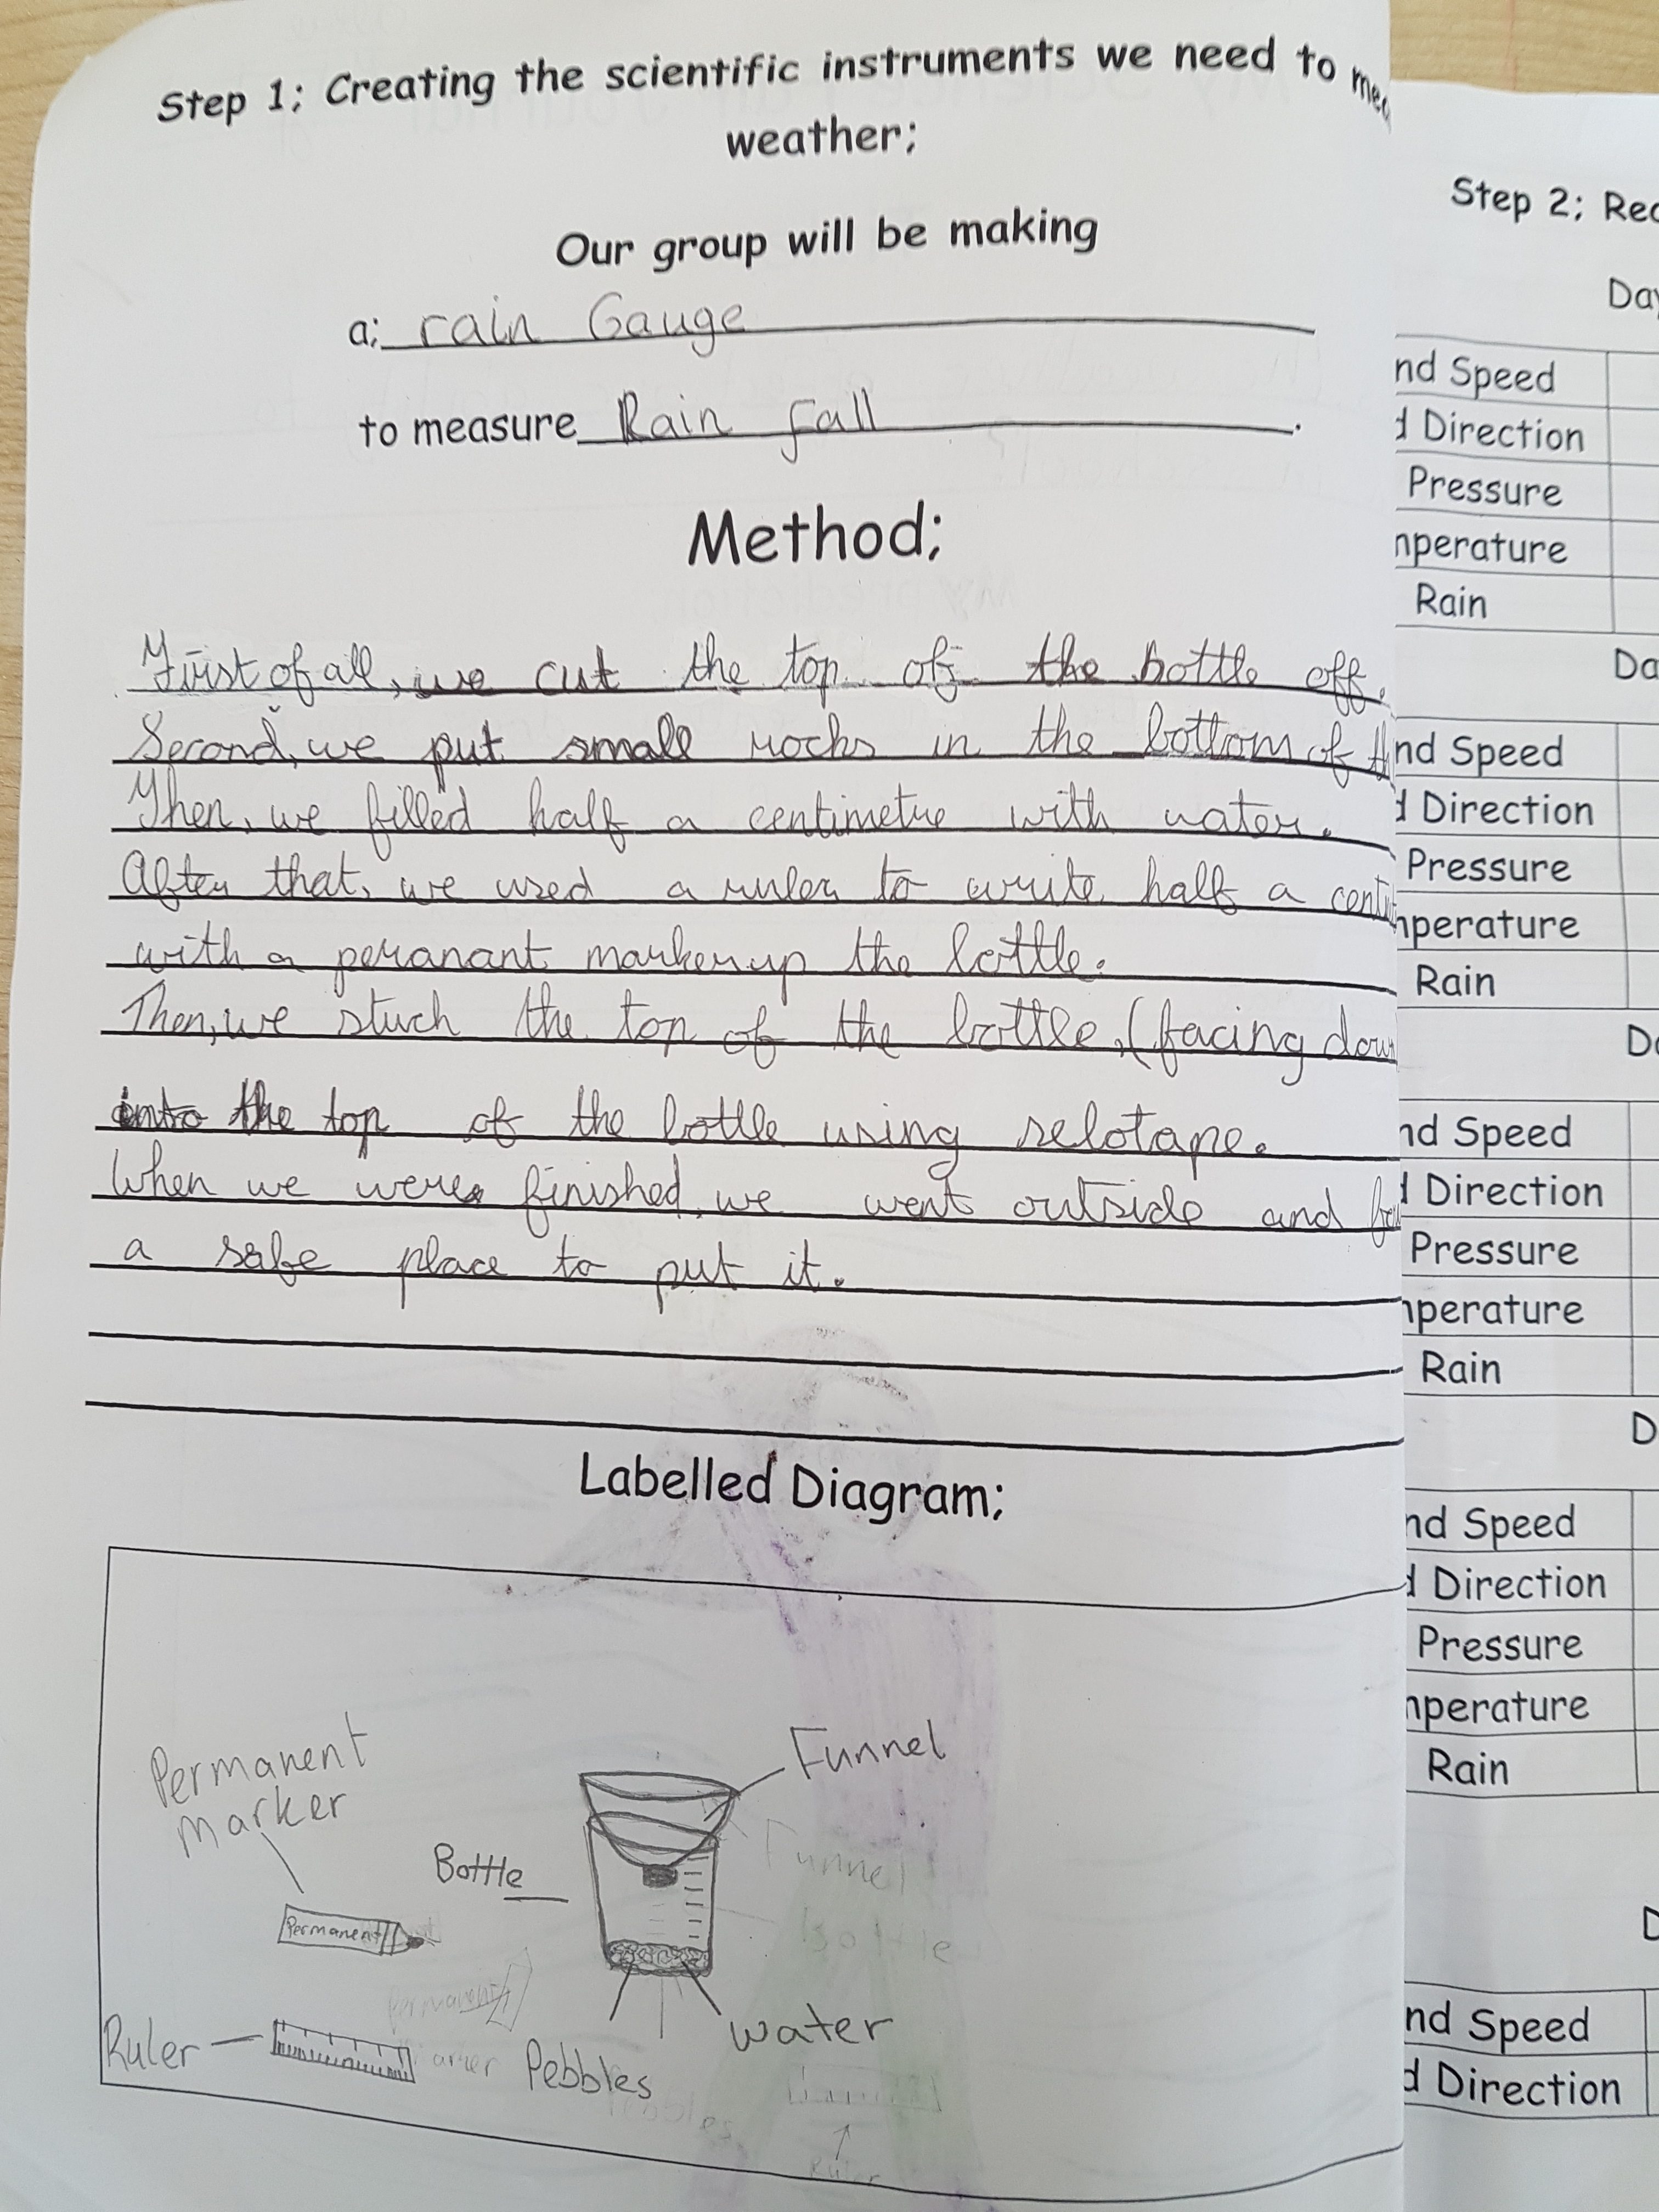 Step 1; Creating the scientific instruments we need to
weather;
Our group will be making
a; rain Gauge
to measure Rain fall.
Method;
First of all, we cut the top of the bottle off.
Second, we put small rocks in the bottom of
Then, we filled half a centimetre with water.
After that, we used a ruler to write half a
with a peranant marker up the bottle.
Then, we stuck the top of the bottle, (facing
into the top of the bottle using selotape.
When we were finished, we went outside and
a safe place to put it.
Labelled Diagram;
Permanent
marker
Funnel
Funnel
Bottle
Bottle
Permanent
Permanent
Ruler
Pebbles
Pebbles
water
Ruler
Step 2;
nd Speed
d Direction
Pressure
mperature
Rain
nd Speed
d Direction
Pressure
mperature
Rain
nd Speed
d Direction
Pressure
mperature
Rain
nd Speed
d Direction
Pressure
mperature
Rain
nd Speed
d Direction